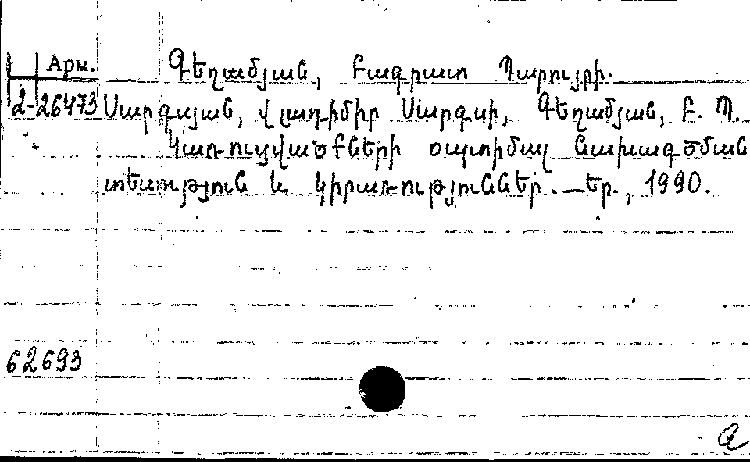 Арм. Գեղամյան, Բագրատ Պարույրի.
2-26473 Սարգսյան, Վլադիմիր Սարգսի, Գեղամյան, Բ. Պ.
Կառուցվածքների օպտիմալ նախագծման
տեսություն և կիրառություններ. — Եր., 1990.
62693